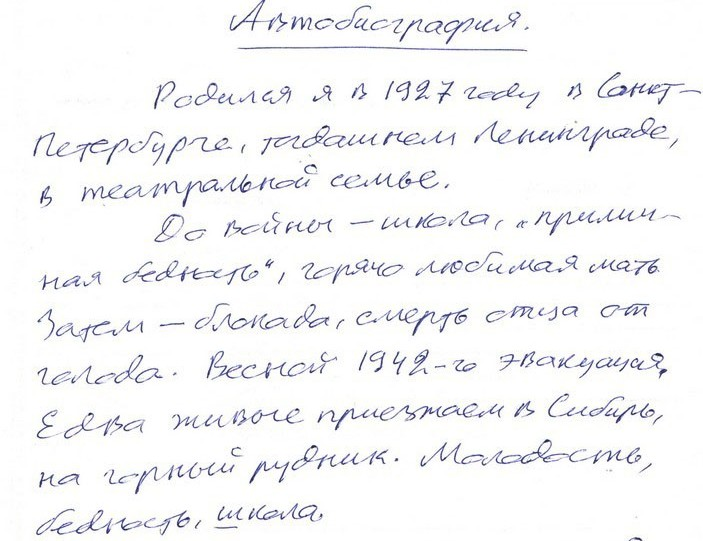 Автобиография.
Родился я в 1927 году в Санкт-
Петербурге, тогдашнем Ленинграде,
в театральной семье.
До войны – школа, „прилич-
ная бедность“, горячо любимая мать
Затем – блокада, смерть отца от
голода. Весной 1942-го эвакуация.
Едва живые приезжаем в Сибирь,
на горный рудник. Молодость,
бедность, школа.